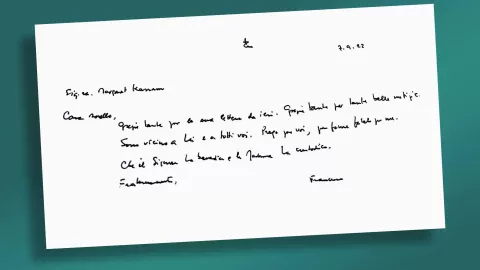 7.9.22
Sig.ra Margaret Karram
Cara sorella,
Grazie tante per la sua lettera di ieri. Grazie tante per tante belle notizie.
Sono vicino a Lei e a tutti voi. Prego per voi, per favore fatelo per me.
Che il Signore La benedica e la Madonna La custodisca.
Fraternamente,
Francesco